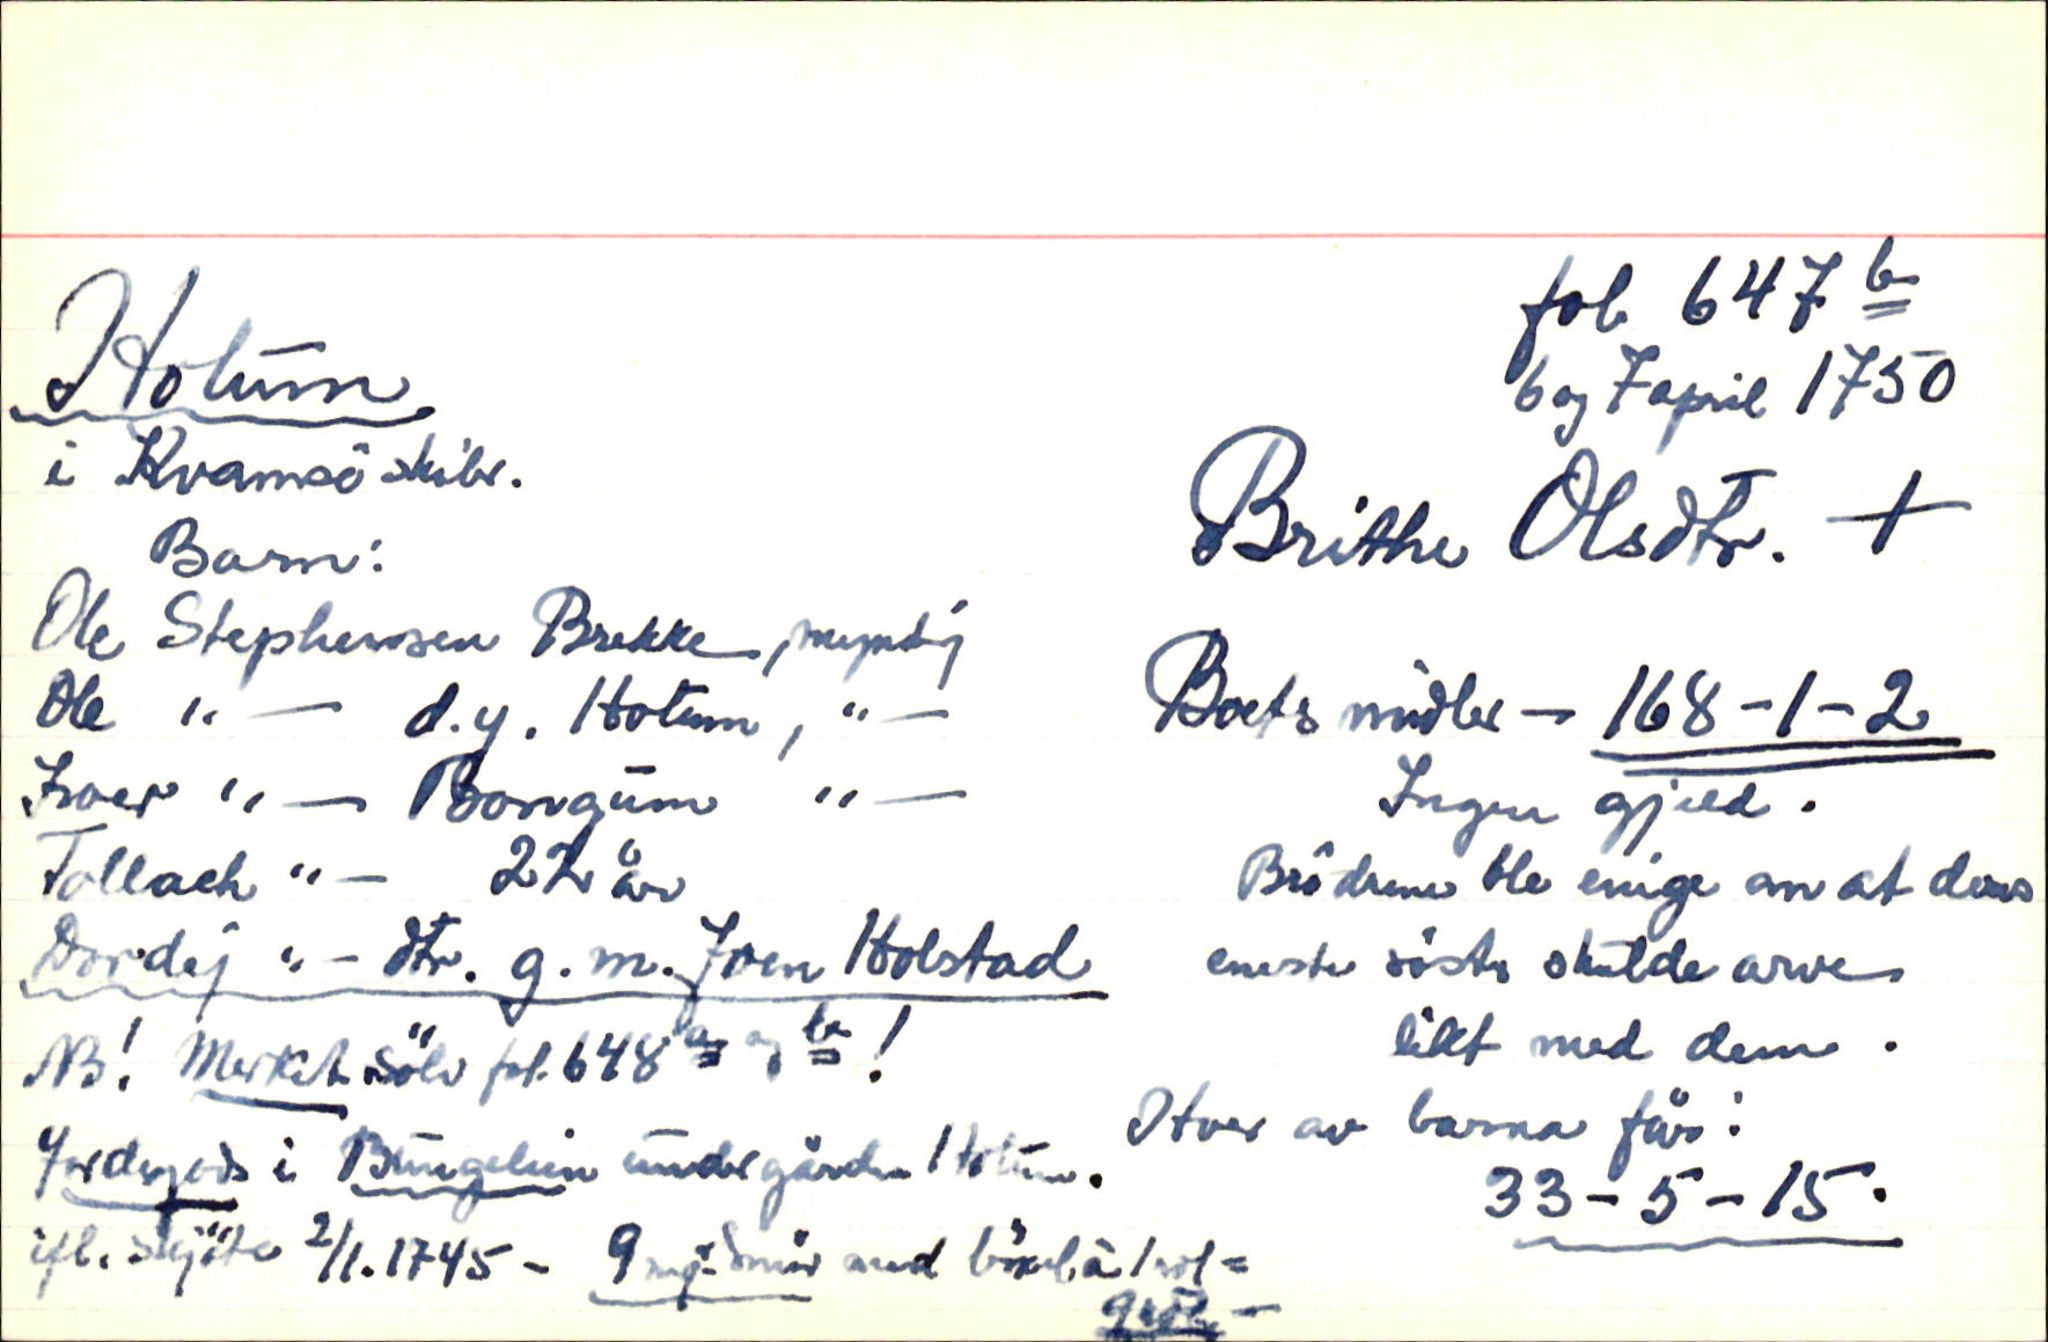 fol. 647 b
6 og 7 april 1750
Hotum
i Kvamsö skibr.
Brithe Olsdtr. +
Barn:
Ole Stephensen Brekke, myndig
Ole "— d.y. Hotum, "—
Iver "— Borgum "—
Tollach "— 22 år
Dordej "— dtr. g. m. Joen Holstad
NB! Merket sölv fol. 648 a og b!
Jordegods i Bungelien under gården Hotum.
ifl. skjöte 2/1. 1745 – 9 mg. smör med böxel à 1 rdl =
9 rdl. –
Boets midler – 168-1-2
Ingen gjeld.
Brödrene ble enige om at deres
eneste söster skulde arve
likt med dem.
Hver av barna får:
33-5-15.